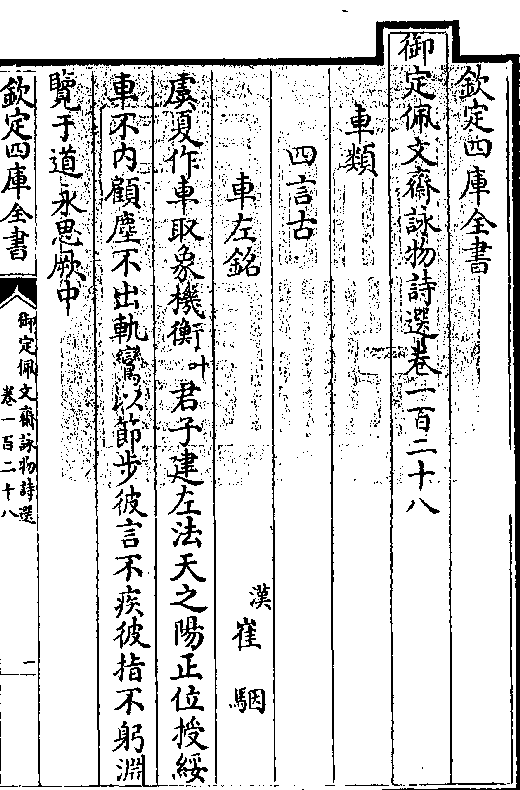 欽定四庫全書
御定佩文齋詠物詩選卷一百二十八
車類
四言古
車左銘 漢 崔駰
虞夏作車取象機衡叶君子建左法天之陽正位授綏
車不内顧塵不出軌鸞以節步彼言不疾彼指不躬淵
覽于道永思厥中
欽定四庫全書
御定佩文齋詠物詩選
卷一百二十八
一